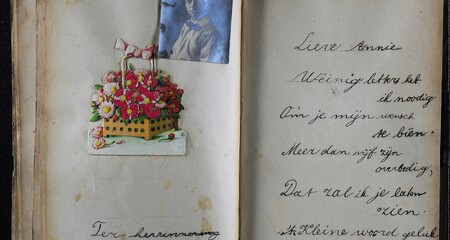 Ter herrinnering
Lieve Annie
Weinig letters heb
ik noodig
Om je mijn wensch
te biên.
Meer dan vijf zijn
overbodig,
Dat zal ik je laten
zien.
ik Kleine woord geluk